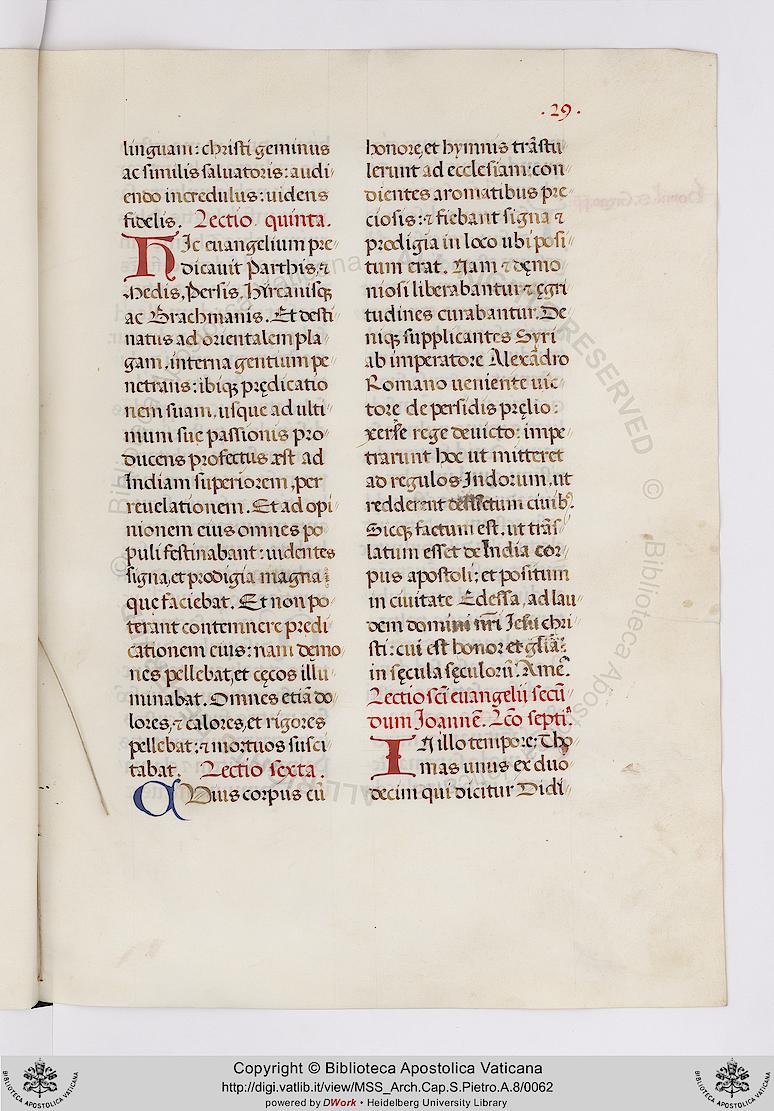 ·29·
linguam: christi geminus
ac similis saluatoris: audi
endo incredulus: uidens
fidelis. Lectio quinta.
Hic euangelium pre
dicauit Parthis, ⁊
Medis, Persis, Hircanisq;
ac Brachmanis. Et desti
natus ad orientalem pla
gam, interna gentium pe
netrans: ibiq; prędicatio
nem suam, usque ad ulti
mum sue passionis pro
ducens profectus æst ad
Indiam superiorem, per
reuelationem. Et ad opi
nionem eius omnes po
puli festinabant: uidentes
signa, et prodigia magna
que faciebat. Et non po
terant contemnere predi
cationem eius: nam demo
nes pellebat, et cęcos illu
minabat. Omnes etiā do
lores, ⁊ calores, et rigores
pellebat: ⁊ mortuos susci
tabat. Lectio sexta.
Cuius corpus cū
honore, et hymnis trāstu
lerunt ad ecclesiam: con
dientes aromatibus pre
ciosis: ⁊ fiebant signa ⁊
prodigia in loco ubi posi
tum erat. Nam ⁊ dęmo
niosi liberabantur ⁊ ęgri
tudines curabantur. De
niq; supplicantes Syri
ab imperatore Alexādro
Romano ueniente uic
tore de persidis pręlio:
xerse rege deuicto: impe
trarunt hoc ut mitteret
ad regulos Indorum, ut
redderent defunctum ciuib;.
Sicq; factum est, ut trās
latum esset de India cor
pus apostoli: et positum
in ciuitate Edessa, ad lau
dem domini nr̄i Jesu chri
sti: cui est honor et glīa:
in sęcula sęculorū. Amē.
Lectio scī euangelii secū
dum Joannē. Lc̄o septiᵃ.
In illo tempore: Tho
mas unus ex duo
decim qui dicitur Didi
Copyright © Biblioteca Apostolica Vaticana
http://digi.vatlib.it/view/MSS_Arch.Cap.S.Pietro.A.8/0062
powered by DWork • Heidelberg University Library
BIBLIOTECA APOSTOLICA VATICANA
BIBLIOTECA APOSTOLICA VATICANA